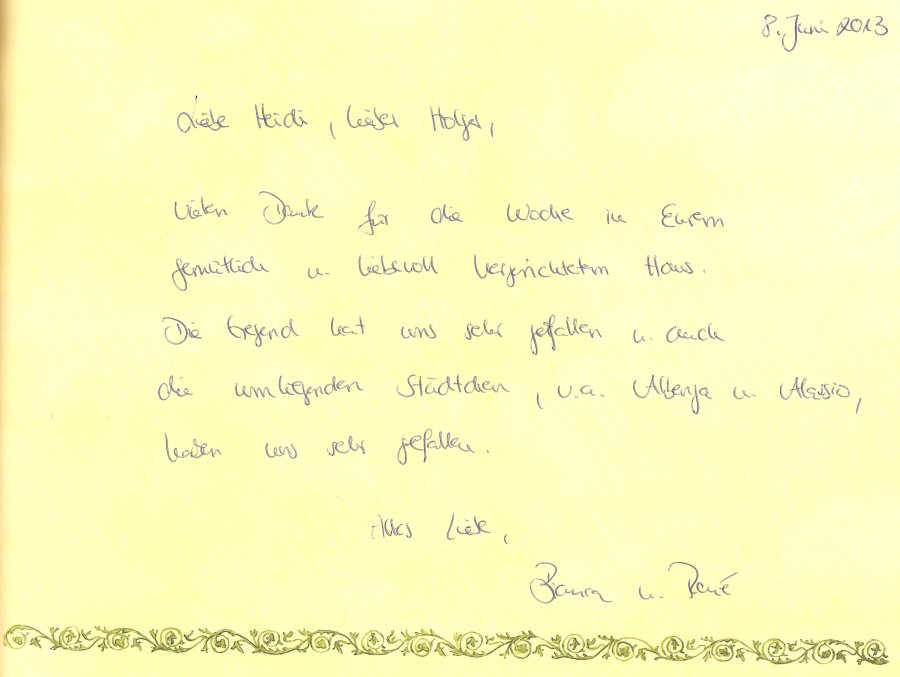 8. Juni 2013
Liebe Heidi, lieber Holger,
vielen Dank für die Woche in Eurem
gemütlich u. liebevoll hergerichtetem Haus.
Die Gegend hat uns sehr gefallen u. auch
die umliegenden Städtchen, v.a. Albenga u. Alassio,
haben uns sehr gefallen.
Alles Liebe,
Bianca u. René